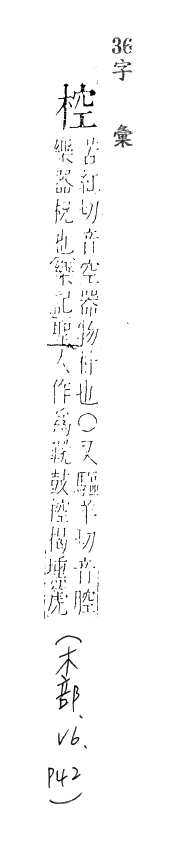 36字彙
椌
苦紅切音空器物朴也○又驅羊切音腔
樂器柷也樂記聖人作為鞉鼓椌楬壎箎
(木部、V6、P42)